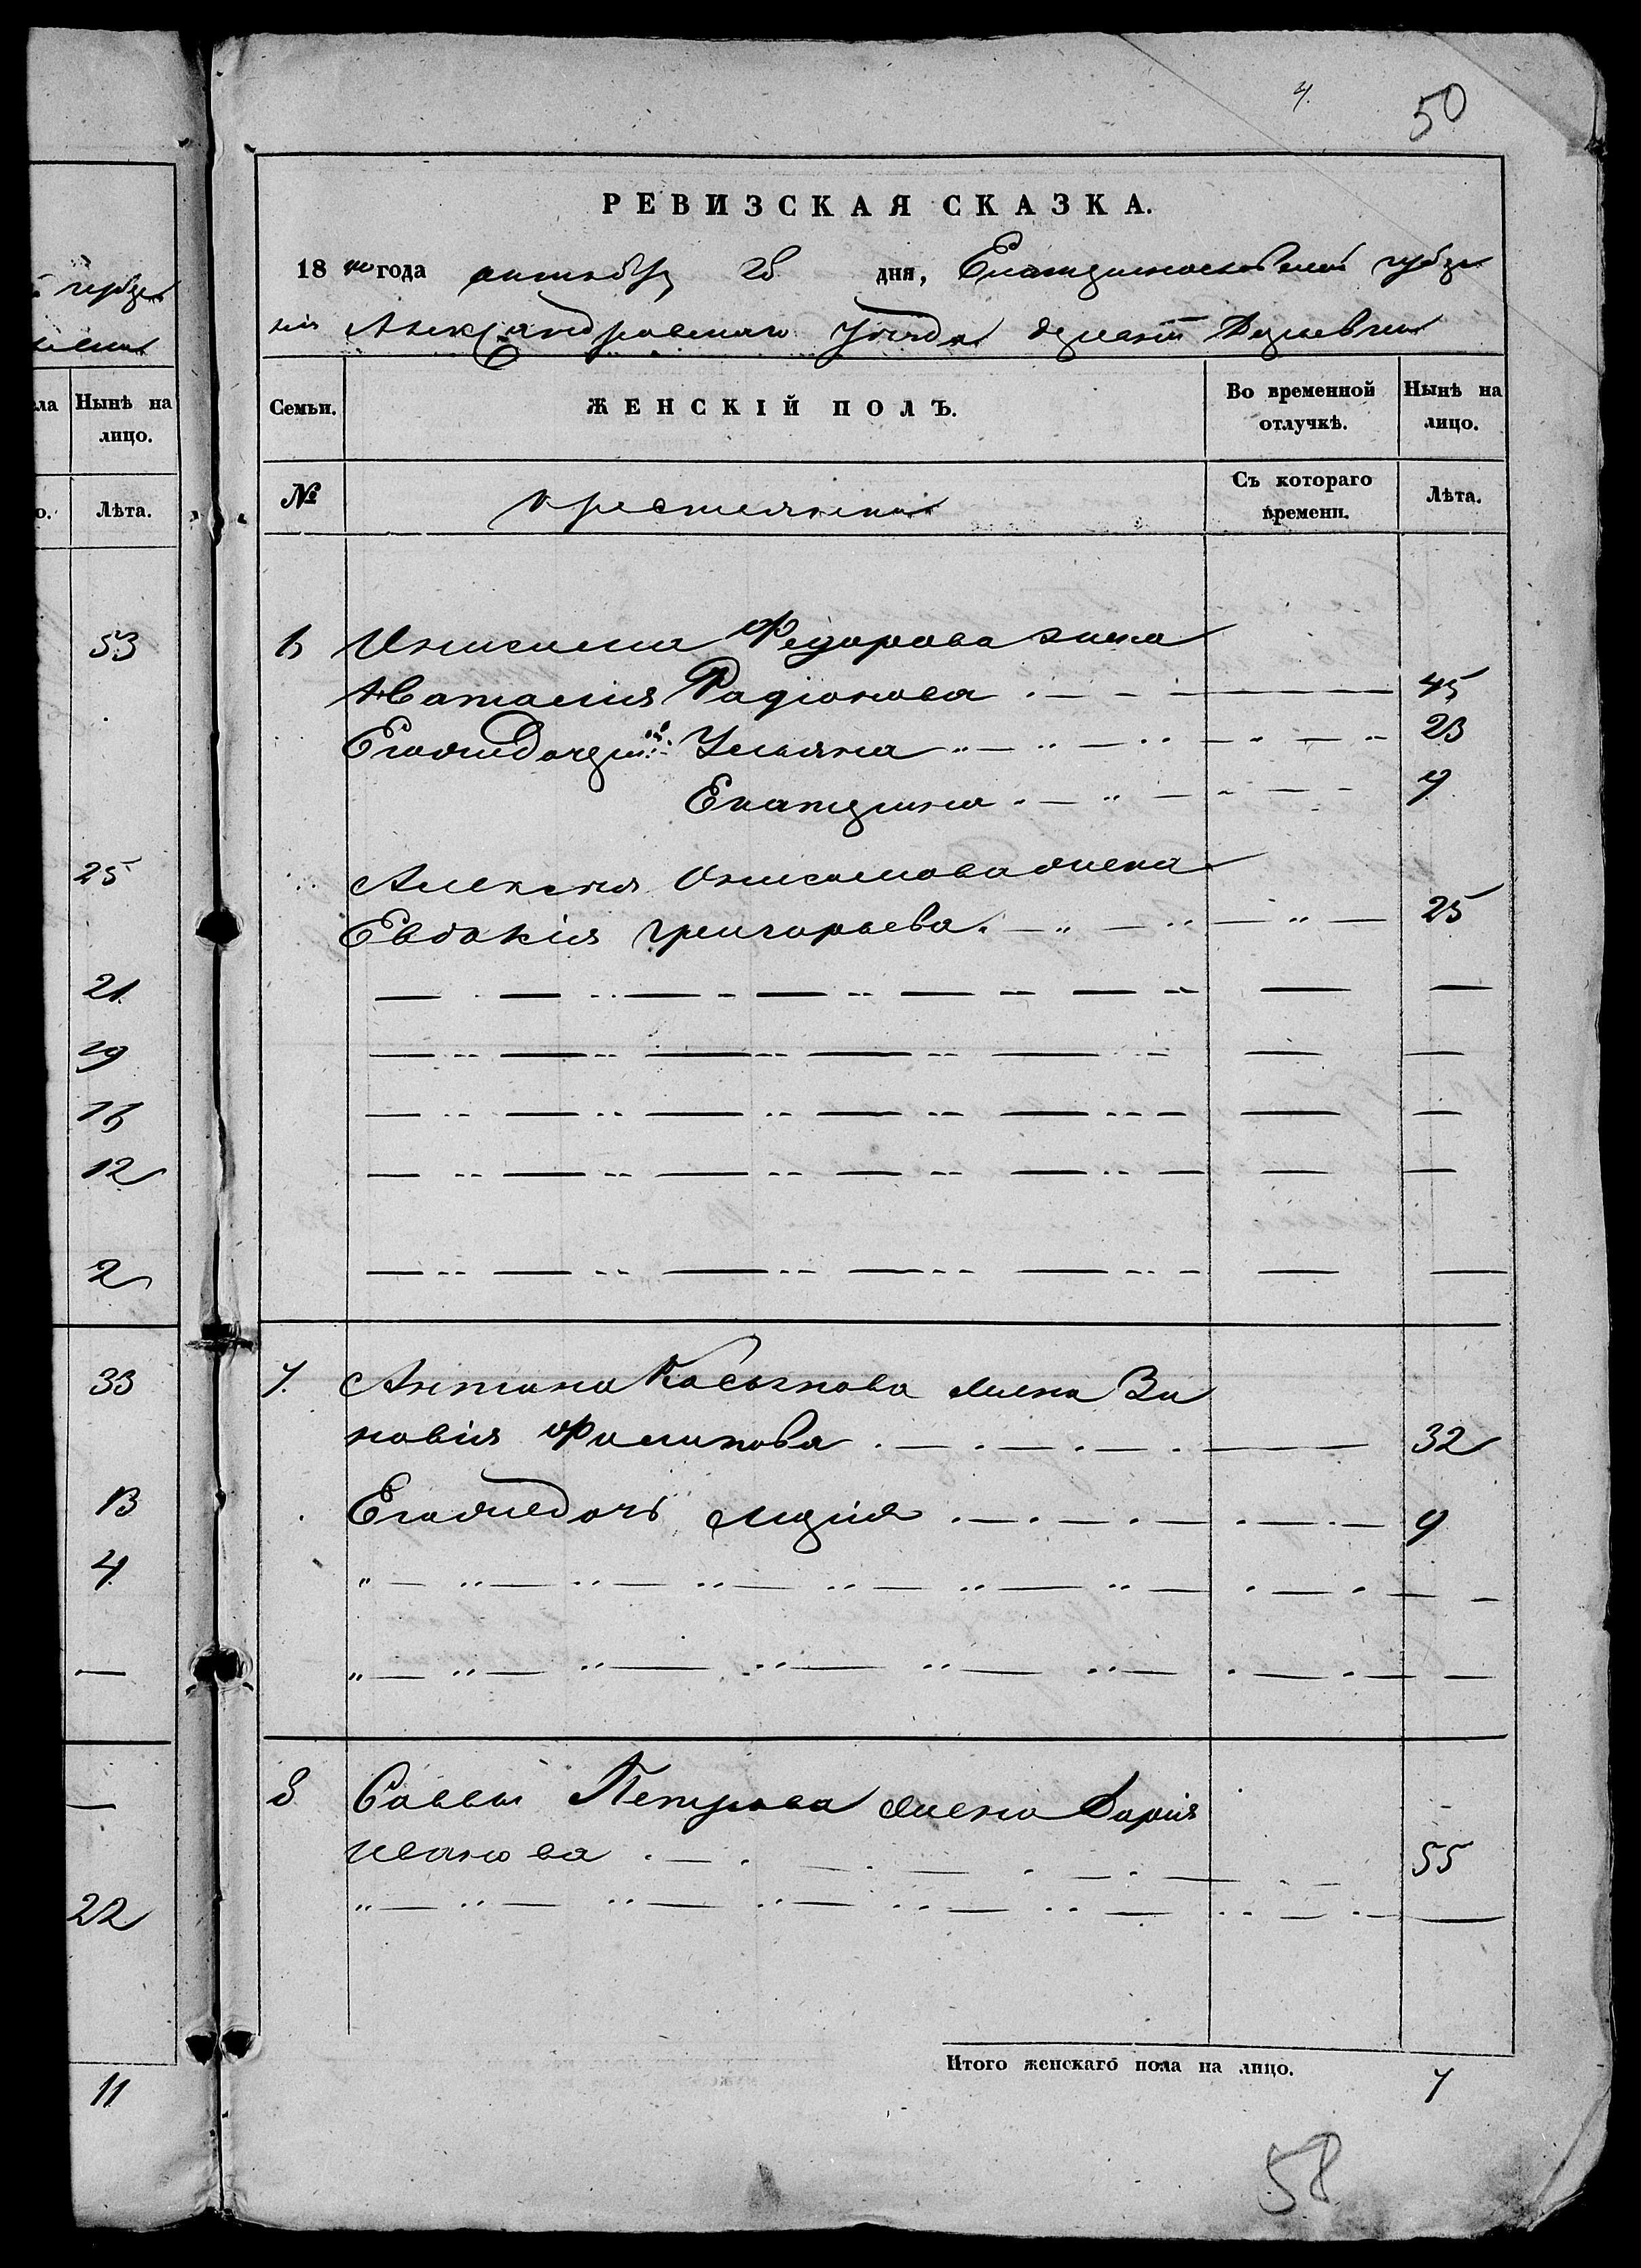 4.
50
РЕВИЗСКАЯ СКАЗКА.
18 года октября 28 дня, Екатеринославской губер
нии Александровскаго Уѣзда деревни
Семьи.
ЖЕНСКІЙ ПОЛЪ.
Во временной отлучкѣ.
Нынѣ на лицо.
№
крестьянки
Съ котораго времени.
Лѣта.
6 Онисима Федорова жена
Наталия Радіонова 45
Его жъ дочери Ульяна 23
Екатерина 9
Алексея Онисимова жена
Евдокія Григорьева 25
7. Антона Касьянова жена Зи
новія Филипова 32
Его же дочь Марія 9
8 Саввы Петрова жена Дарія
Иванова 55
Итого женскаго пола на лицо. 7
58
губер
Нынѣ на лицо.
Лѣта.
53
25
21
19
16
12
2
33
13
4
22
11